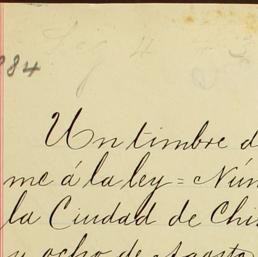 884
Un timbre d
me á la ley = Núm
la Ciudad de Chi
y ocho de Agosto